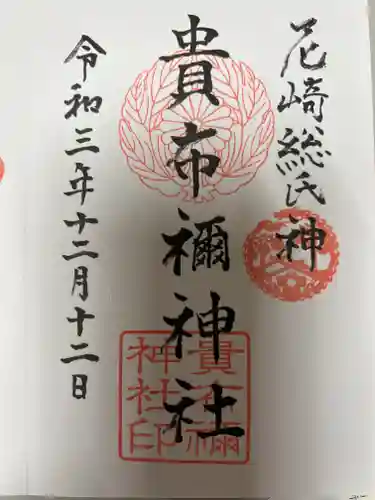 尼崎総氏神
貴布禰神社
令和三年十二月十二日
貴布禰
神社印